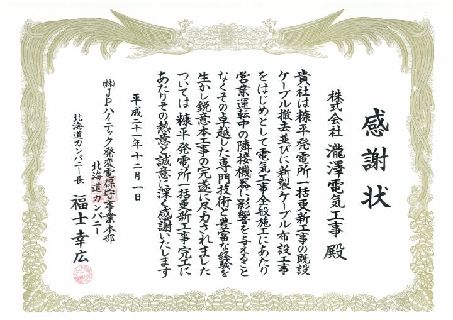 感謝状
株式会社 瀧澤電気工事 殿
貴社は糠平発電所一括更新工事の既設
ケーブル撤去並びに新製ケーブル布設工事
をはじめとして電気工事全般施工にあたり
営業運転中の隣接機器に影響を与えること
なくその卓越した専門技術と豊富な経験を
生かし鋭意本工事の完遂に尽力されました
ついては糠平発電所一括更新工事完工に
あたりその熱意と誠意に深く感謝いたします
平成二十一年十二月一日
㈱JPハイテック 発変電保守事業本部
北海道カンパニー
北海道カンパニー長 福士幸広